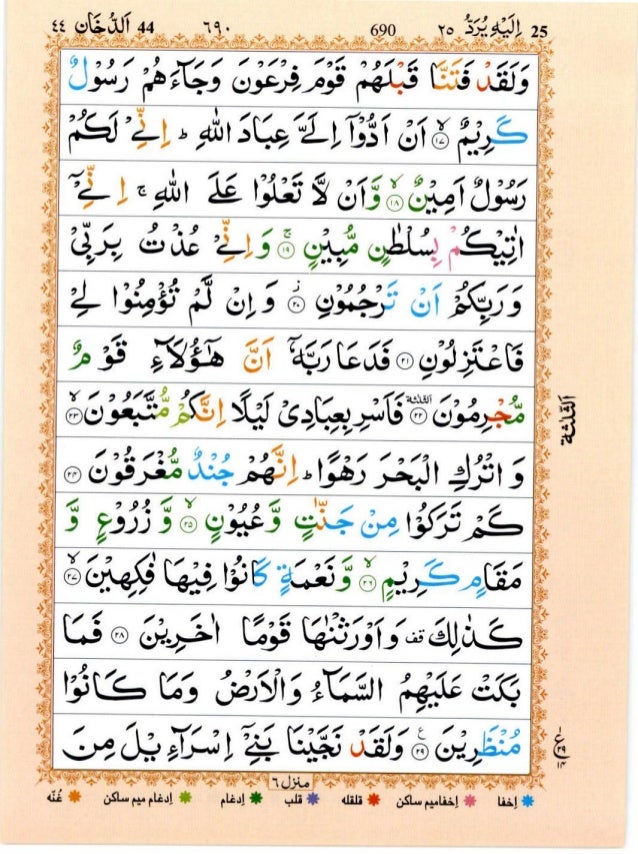 ٤٤ اَلدُّخَان 44 ٦٩٠ 690 ٢٥ اِلَيْهِ يُرَدُّ 25
وَلَقَدْ فَتَنَّا قَبْلَهُمْ قَوْمَ فِرْعَوْنَ وَجَآءَهُمْ رَسُوْلٌ
كَرِيْمٌ ۙ‏﴿۱۷﴾ اَنْ اَدُّوْۤا اِلَىَّ عِبَادَ اللّٰهِ ؕ اِنِّىْ لَكُمْ
رَسُوْلٌ اَمِيْنٌ ۙ‏﴿۱۸﴾ وَّاَنْ لَّا تَعْلُوْا عَلَى اللّٰهِ ۚ اِنِّىْۤ
اٰتِيْكُمْ بِسُلْطٰنٍ مُّبِيْنٍ ۚ‏﴿۱۹﴾ وَاِنِّىْ عُذْتُ بِرَبِّىْ
وَرَبِّكُمْ اَنْ تَرْجُمُوْنِ ؗ‏﴿۲۰﴾ وَاِنْ لَّمْ تُؤْمِنُوْا لِىْ
فَاعْتَزِلُوْنِ ‏﴿۲۱﴾ فَدَعَا رَبَّهٗۤ اَنَّ هٰٓؤُلَآءِ قَوْمٌ
مُّجْرِمُوْنَ ‏﴿۲۲﴾ الثلثة فَاَسْرِ بِعِبَادِىْ لَيْلًا اِنَّكُمْ مُّتَّبَعُوْنَ ۙ‏﴿۲۳﴾
وَاتْرُكِ الْبَحْرَ رَهْوًا ؕ اِنَّهُمْ جُنْدٌ مُّغْرَقُوْنَ ‏﴿۲۴﴾
كَمْ تَرَكُوْا مِنْ جَنّٰتٍ وَّعُيُوْنٍ ۙ‏﴿۲۵﴾ وَّزُرُوْعٍ وَّ
مَقَامٍ كَرِيْمٍ ۙ‏﴿۲۶﴾ وَّنَعْمَةٍ كَانُوْا فِيْهَا فٰكِهِيْنَ ۙ‏﴿۲۷﴾
كَذٰلِكَ قف وَاَوْرَثْنٰهَا قَوْمًا اٰخَرِيْنَ ‏﴿۲۸﴾ فَمَا
بَكَتْ عَلَيْهِمُ السَّمَآءُ وَالْاَرْضُ وَمَا كَانُوْا
مُنْظَرِيْنَ ‏﴿۲۹﴾ ع وَلَقَدْ نَجَّيْنَا بَنِىْۤ اِسْرَآءِيْلَ مِنَ
اَلثَّلٰثَة
ع ١ ٢٩ ١٤
منزل ٦
اِخفا اِخفامیم ساکن قلقله قلب اِدغام اِدغام میم ساکن غُنّه